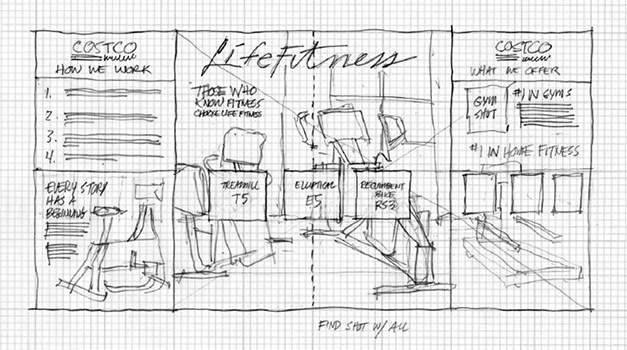 COSTCO
HOW WE WORK
1.
2.
3.
4.
EVERY STORY
HAS A
BEGINNING
LifeFitness
THOSE WHO
KNOW FITNESS
CHOOSE LIFE FITNESS
TREADMILL
T5
ELLIPTICAL
E5
RECUMBENT
BIKE
RS3
COSTCO
WHAT WE OFFER
GYM
SHOT
#1 IN GYMS
#1 IN HOME FITNESS
FIND SHOT W/ ALL